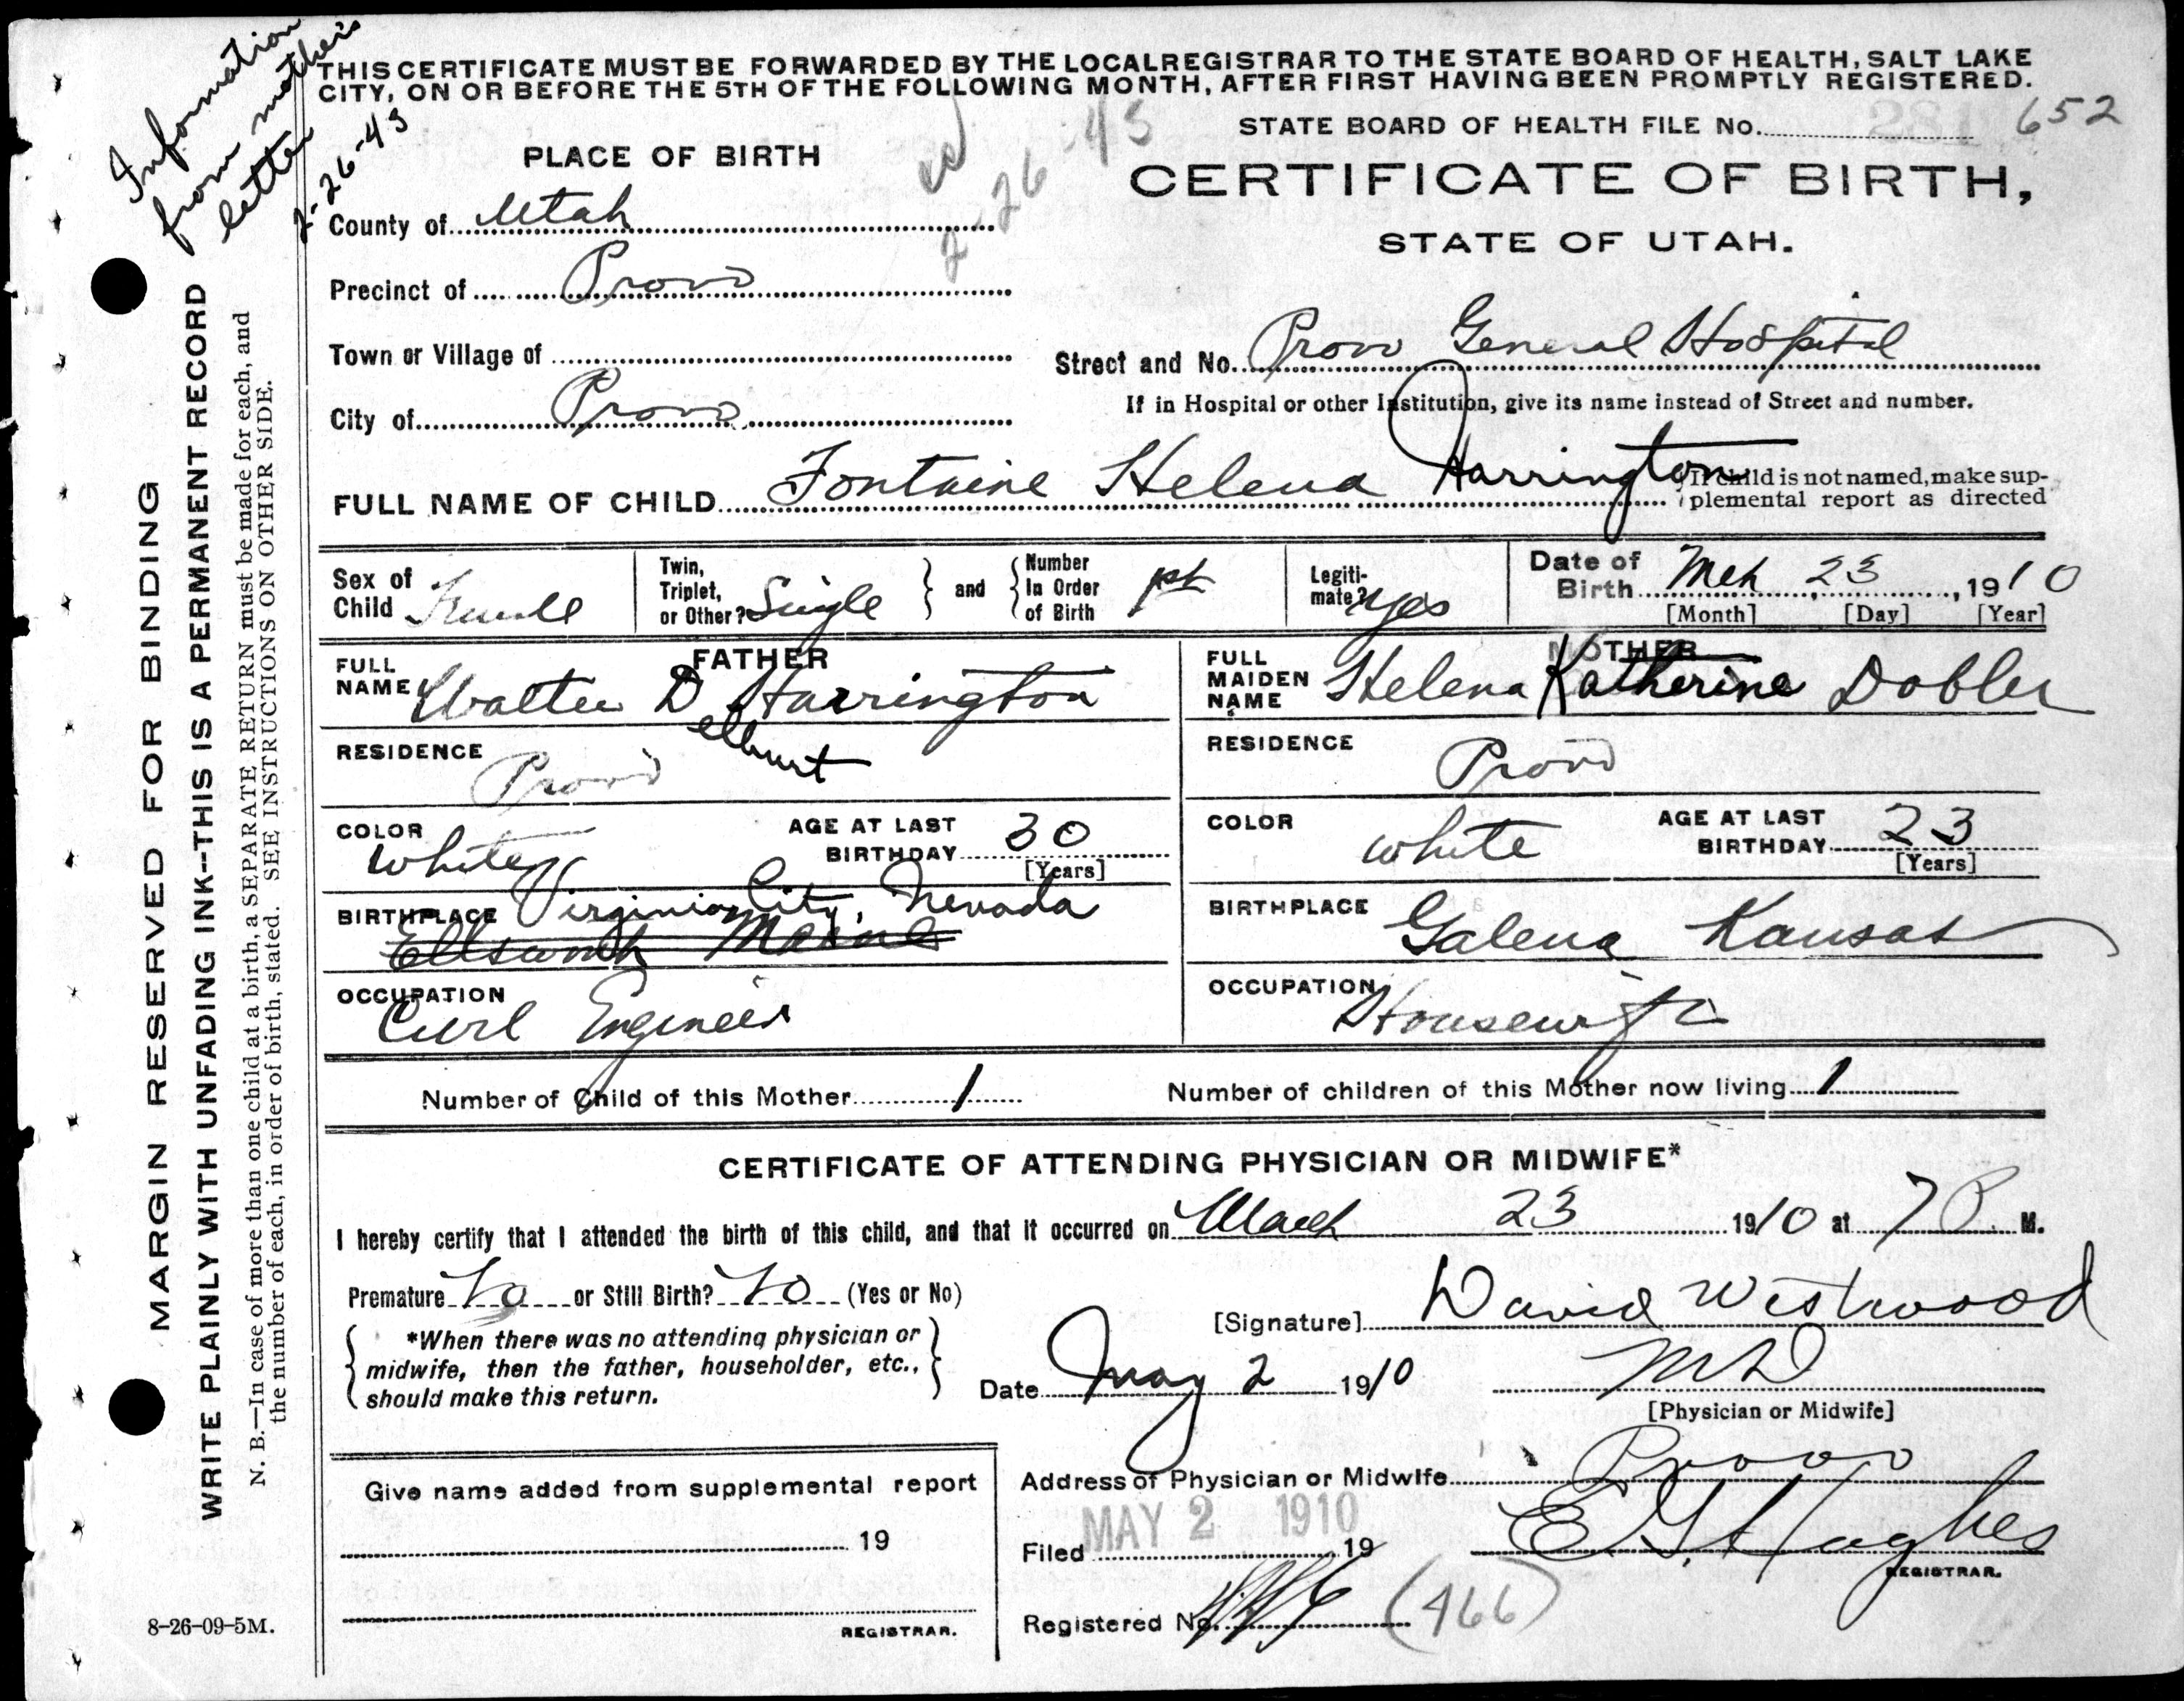 Information
from mother's
letter
2-26-43
THIS CERTIFICATE MUST BE FORWARDED BY THE LOCAL REGISTRAR TO THE STATE BOARD OF HEALTH, SALT LAKE
CITY, ON OR BEFORE THE 5TH OF THE FOLLOWING MONTH, AFTER FIRST HAVING BEEN PROMPTLY REGISTERED.
2-26-43
STATE BOARD OF HEALTH FILE No. 652
PLACE OF BIRTH
CERTIFICATE OF BIRTH,
STATE OF UTAH.
County of Utah
Precinct of Provo
Town or Village of
Street and No. Provo General Hospital
If in Hospital or other Institution, give its name instead of Street and number.
City of Provo
FULL NAME OF CHILD Fontaine Helena Harrington
If child is not named, make sup-
plemental report as directed
Sex of Child Female
Twin, Triplet, or Other? Single
and
Number In Order of Birth 1st
Legiti-mate? Yes
Date of Birth Mch 23, 1910
[Month] [Day] [Year]
FATHER
FULL NAME Walter D Harrington
elbert
RESIDENCE Provo
COLOR White
AGE AT LAST BIRTHDAY 30
[Years]
BIRTHPLACE Virginia City, Nevada
Ellsworth Maine
OCCUPATION Civil Engineer
MOTHER
FULL MAIDEN NAME Helena Katherine Dobler
RESIDENCE Provo
COLOR White
AGE AT LAST BIRTHDAY 23
[Years]
BIRTHPLACE Galena Kansas
OCCUPATION Housewife
Number of Child of this Mother 1
Number of children of this Mother now living 1
CERTIFICATE OF ATTENDING PHYSICIAN OR MIDWIFE*
I hereby certify that I attended the birth of this child, and that it occurred on March 23 1910 at 7 P. M.
Premature No or Still Birth? No (Yes or No)
*When there was no attending physician or
midwife, then the father, householder, etc.,
should make this return.
[Signature] David Westwood
MD
[Physician or Midwife]
Date May 2 1910
Address of Physician or Midwife Provo
Give name added from supplemental report
19
REGISTRAR.
Filed MAY 2 1910 19
E G Hughes
REGISTRAR.
Registered No. (466)
8-26-09-5M.
MARGIN RESERVED FOR BINDING
WRITE PLAINLY WITH UNFADING INK--THIS IS A PERMANENT RECORD
N. B.—In case of more than one child at a birth, a SEPARATE RETURN must be made for each, and
the number of each, in order of birth, stated. SEE INSTRUCTIONS ON OTHER SIDE.